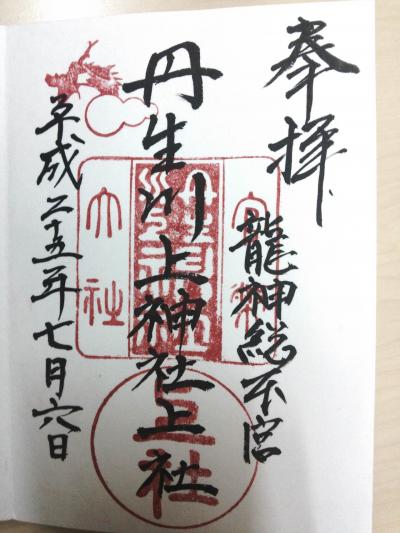 奉拝
龍神総本宮
丹生川上神社上社
平成二十五年七月六日
官幣
大社
上社